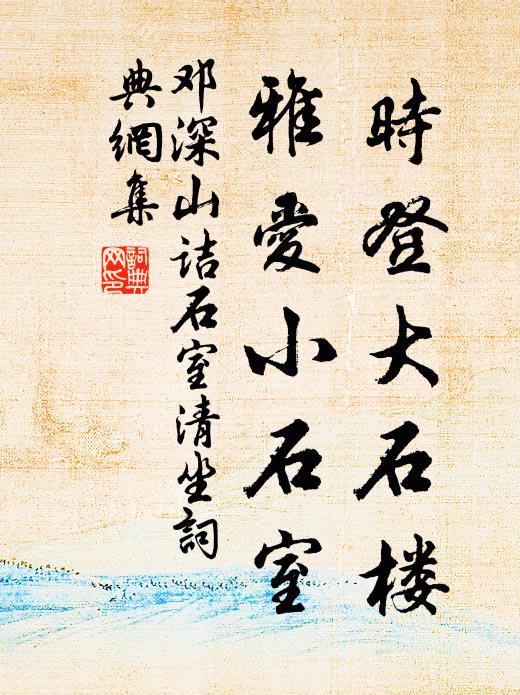 時登大石楼
雅愛小石室
邓深山诘石室清坐詞
典網集
詞典
网印